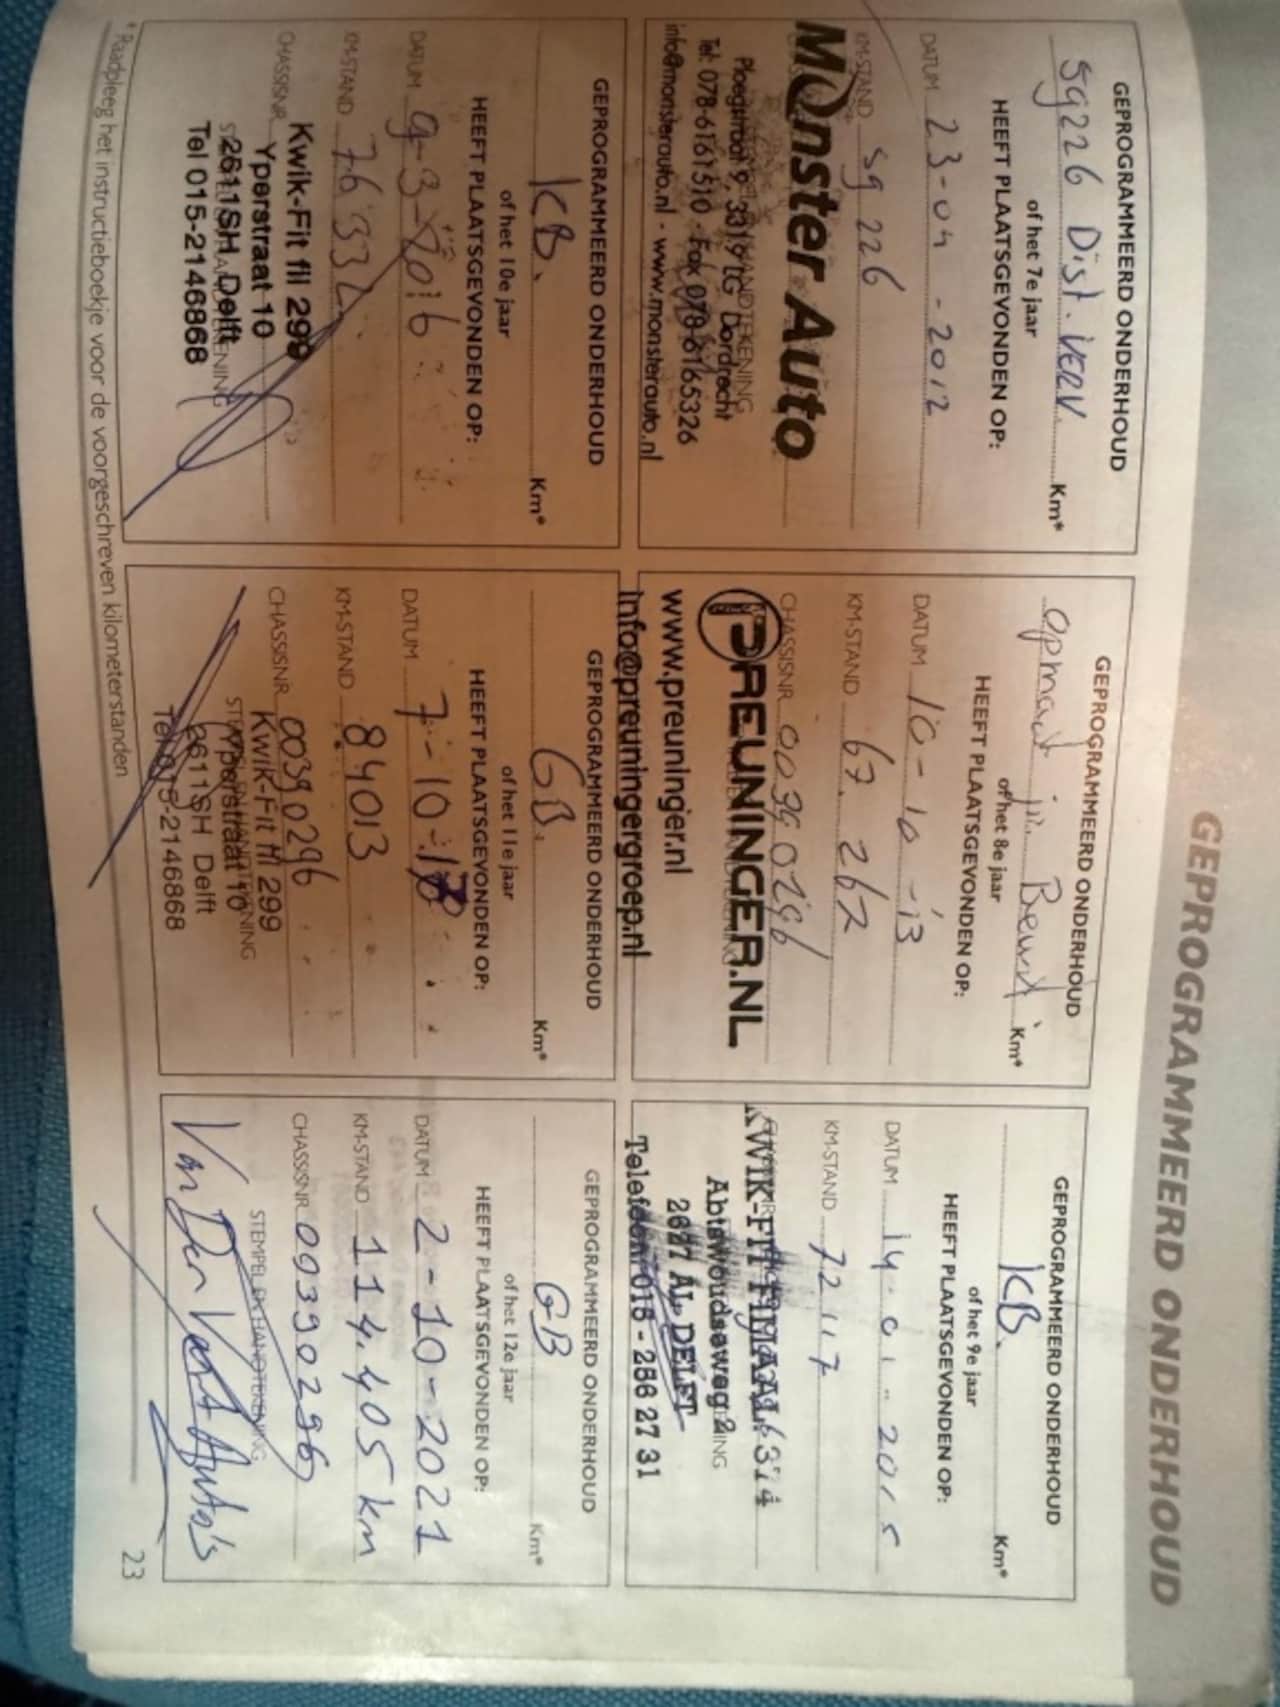 GEPROGRAMMEERD ONDERHOUD
GEPROGRAMMEERD ONDERHOUD
59226 Dist. VERV. Km*
of het 7e jaar
HEEFT PLAATSGEVONDEN OP:
DATUM 23-04-2012
KM-STAND 59226
Monster Auto
Ploegstraat 9, 3319 LG Dordrecht
Tel: 078-6161510 - Fax 078-6165326
info@monsterauto.nl - www.monsterauto.nl
GEPROGRAMMEERD ONDERHOUD
opmaat Km*
of het 8e jaar
HEEFT PLAATSGEVONDEN OP:
DATUM 10-10-13
KM-STAND 67.267
CHASSISNR. 00390296
PREUNINGER.NL
www.preuninger.nl
info@preuningergroep.nl
GEPROGRAMMEERD ONDERHOUD
KB. Km*
of het 9e jaar
HEEFT PLAATSGEVONDEN OP:
DATUM 14-01-2015
KM-STAND 72117
KWIK-FIT FILIAAL 374
Abtswoudseweg 2
2627 AL DELFT
Telefoon: 015 - 256 27 31
GEPROGRAMMEERD ONDERHOUD
KB. Km*
of het 10e jaar
HEEFT PLAATSGEVONDEN OP:
DATUM 9-3-2016
KM-STAND 76332
CHASSISNR.
Kwik-Fit fil 299
Yperstraat 10
2611SH Delft
Tel 015-2146868
GEPROGRAMMEERD ONDERHOUD
GB. Km*
of het 11e jaar
HEEFT PLAATSGEVONDEN OP:
DATUM 7-10-17
KM-STAND 84013
CHASSISNR. 00390296
STEMPEL EN HANDTEKENING
Kwik-Fit fil 299
Yperstraat 10
2611SH Delft
Tel 015-2146868
GEPROGRAMMEERD ONDERHOUD
GB Km*
of het 12e jaar
HEEFT PLAATSGEVONDEN OP:
DATUM 2-10-2021
KM-STAND 114.405 km
CHASSISNR. 00390296
STEMPEL EN HANDTEKENING
Van Der Vest Auto's
* Raadpleeg het instructieboekje voor de voorgeschreven kilometerstanden
23